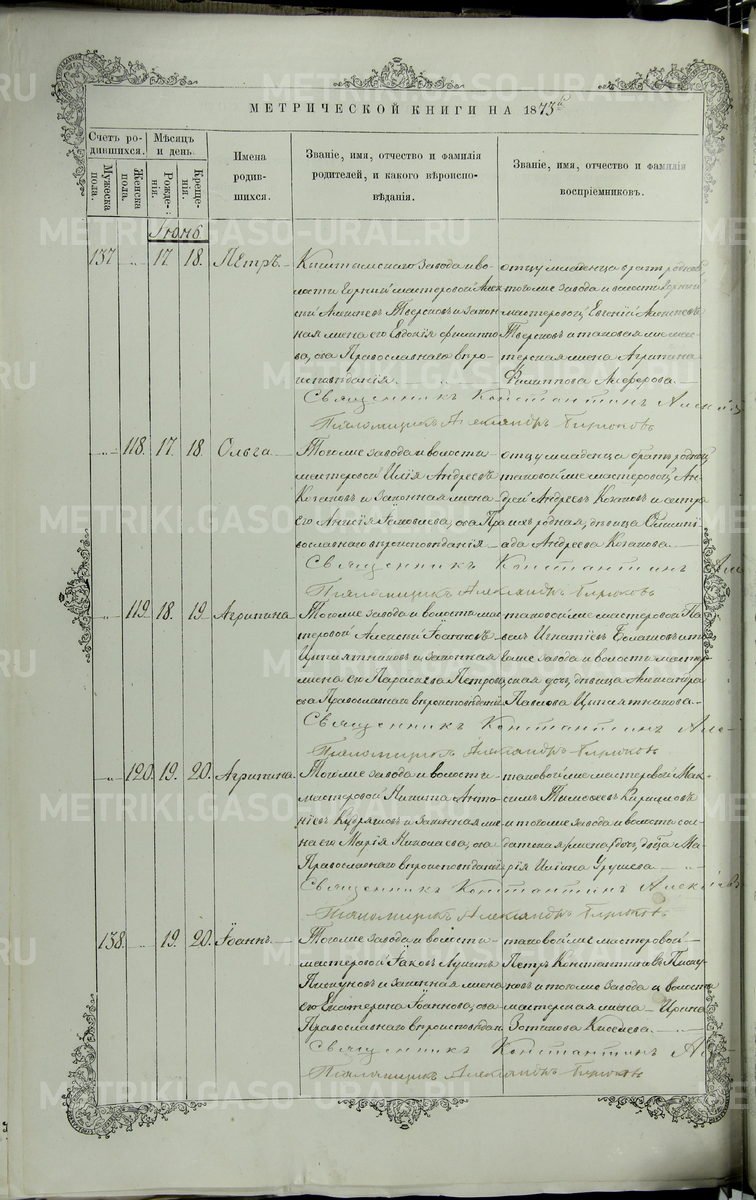 МЕТРИЧЕСКОЙ КНИГИ НА 1873й
Счетъ ро-
дившихся.
Мужеска
пола.
Женска
пола.
Мѣсяцъ
и день.
Рожде-
нія.
Креще-
нія.
Имена
родив-
шихся.
Званіе, имя, отчество и фамилія
родителей, и какого вѣроиспо-
вѣданія.
Званіе, имя, отчество и фамилія
воспріемниковъ.
Іюнь
137 17. 18. Петръ.
Кыштымскаго завода и во-
лости Горный мастеровой Алек
сѣй Тверсковъ и закон
ная жена его Евдокія Филиппо
ва, оба Православнаго вѣро-
исповѣданія.
отцу младенца братъ родной
тогоже завода и волости Горный
мастеровой Евгеній Алексѣевъ
Тверсковъ и таковая же мас-
терская жена Агрипина
Филиппова
Священникъ Константинъ
Псаломщикъ Александръ Бирюковъ
118. 17. 18. Ольга
Тогоже завода и волости
мастеровой Илія Андреевъ
Козаковъ и законная жена
его Анисія Яковлева, оба Пра
вославнаго вѣроисповѣданія
отцу младенца братъ родной
таковой же мастеровой Ан-
дрей Андреевъ Козаковъ и сестра
ихъ родная, дѣвица Олимпі
ада Андреева Козакова
Священникъ Константинъ
Псаломщикъ Александръ Бирюковъ
119. 18. 19. Агрипина
Тогоже завода и волости мас
теровой Алексѣй Іоанновъ
и законная
жена его Параскева Петрова,
оба Православнаго вѣроисповѣданія
таковой же мастеровой Па-
велъ Игнатіевъ и то
гоже завода и волости мастер
ская дочь, дѣвица Александра
Павлова
Священникъ Константинъ
Псаломщикъ Александръ Бирюковъ
120. 19. 20. Агрипина.
Тогоже завода и волости
мастеровой Никита Анто-
ніевъ Кудряшовъ и законная же
на его Марія Николаева, оба
Православнаго вѣроисповѣданія
таковой же мастеровой Мак-
симъ Тимофеевъ Кириловъ
и тогоже завода и волости сол-
датская дочь, дѣвица Ма-
рія Ильина
Священникъ Константинъ
Псаломщикъ Александръ Бирюковъ
138. 19. 20. Іоаннъ.
Тогоже завода и волости
мастеровой Іаковъ Лукинъ
Пискуновъ и законная жена
его Екатерина Іоаннова, оба
Православнаго вѣроисповѣдан
таковой же мастеровой
Петръ Константиновъ Писку
новъ и тогоже завода и волости
мастерская жена Ирина
Зотикова Киселева.
Священникъ Константинъ
Псаломщикъ Александръ Бирюковъ
METRIKI.GASO-URAL.RU